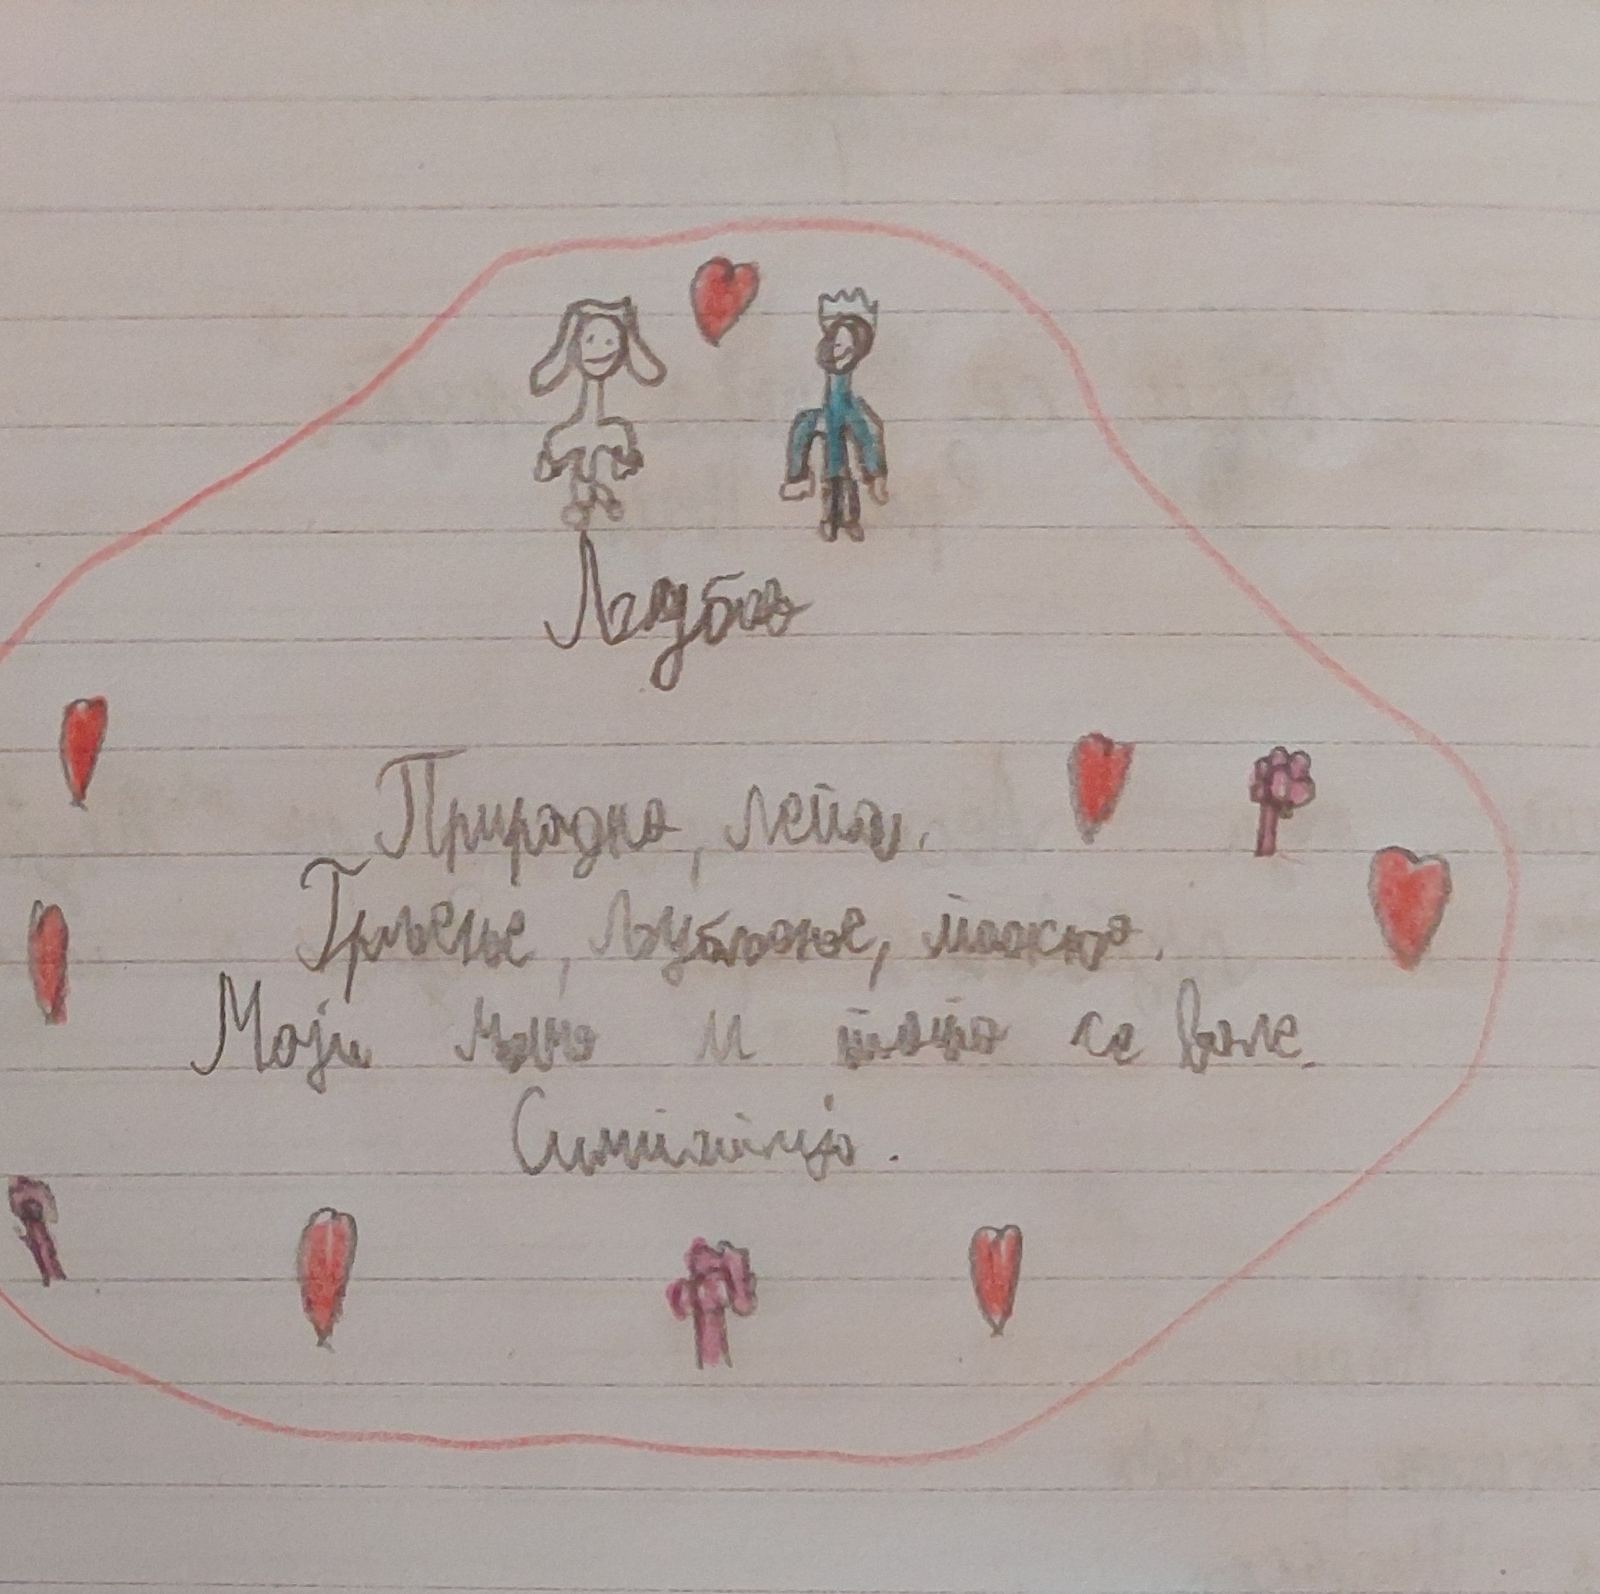 Љубав
Природна, лепа.
Грљење, љубљење, пажња.
Моји мама и тата се воле.
Симпатија.